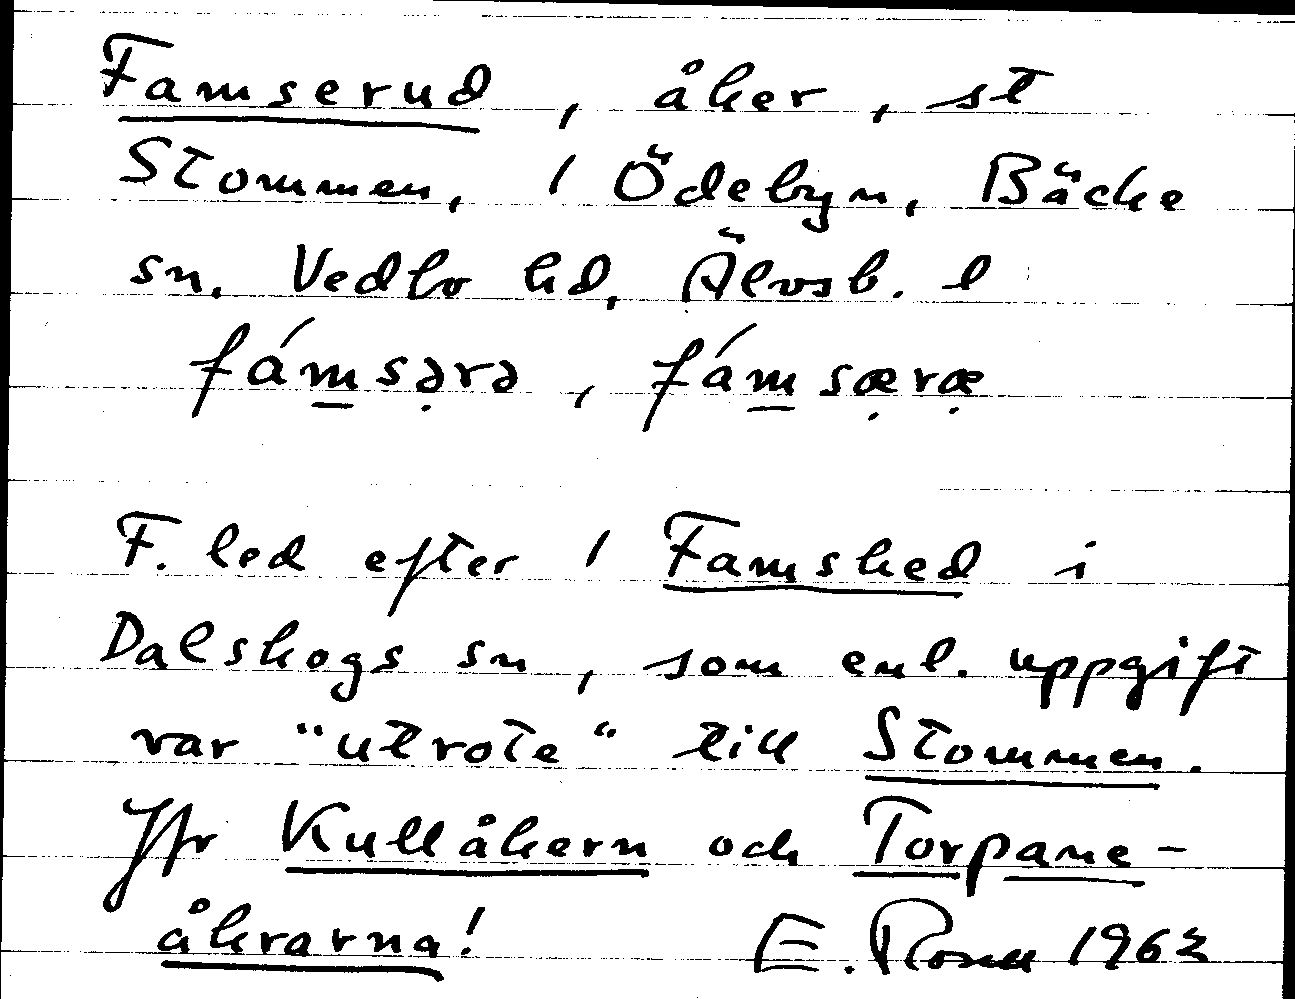 Famserud, åker, st
Stommen, / Ödebyn, Bäcke
sn. Vedbo hd, Älvsb. l
fámsərə, fámsæræ
F. led efter / Famsked i
Dalskogs sn, som enl. uppgift
var "utrote" till Stommen.
Jfr Kullåkern och Torpane-
åkrarna! E. 1962